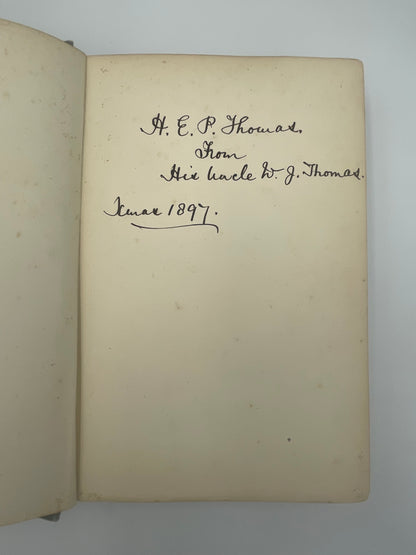 H. E. P. Thomas.
From
His Uncle W. J. Thomas.
Xmas 1897.